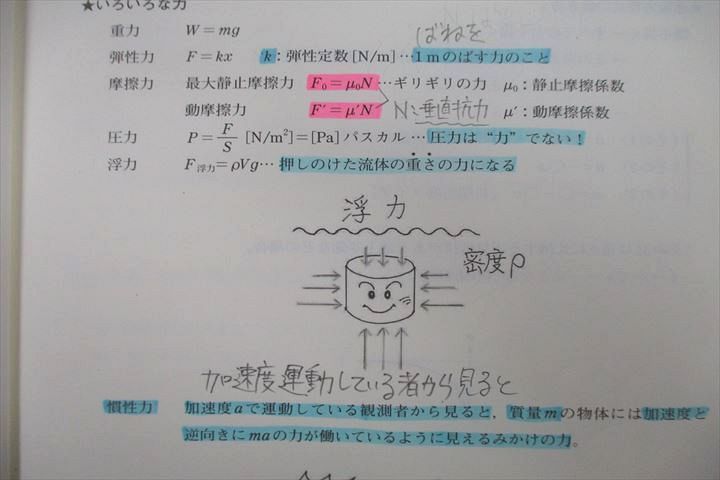 ★いろいろな力
重力 W = mg
ばねを
弾性力 F = kx k：弾性定数 [N/m] …1 mのばす力のこと
摩擦力 最大静止摩擦力 F₀ = μ₀N …ギリギリの力 μ₀：静止摩擦係数
動摩擦力 F′ = μ′N N：垂直抗力 μ′：動摩擦係数
圧力 P = F/S [N/m²]=[Pa] パスカル … 圧力は“力”でない！
浮力 F浮力 = ρVg… 押しのけた流体の重さの力になる
浮力
密度ρ
加速度運動している者から見ると
慣性力 加速度aで運動している観測者から見ると，質量mの物体には加速度と
逆向きにmaの力が働いているように見えるみかけの力。